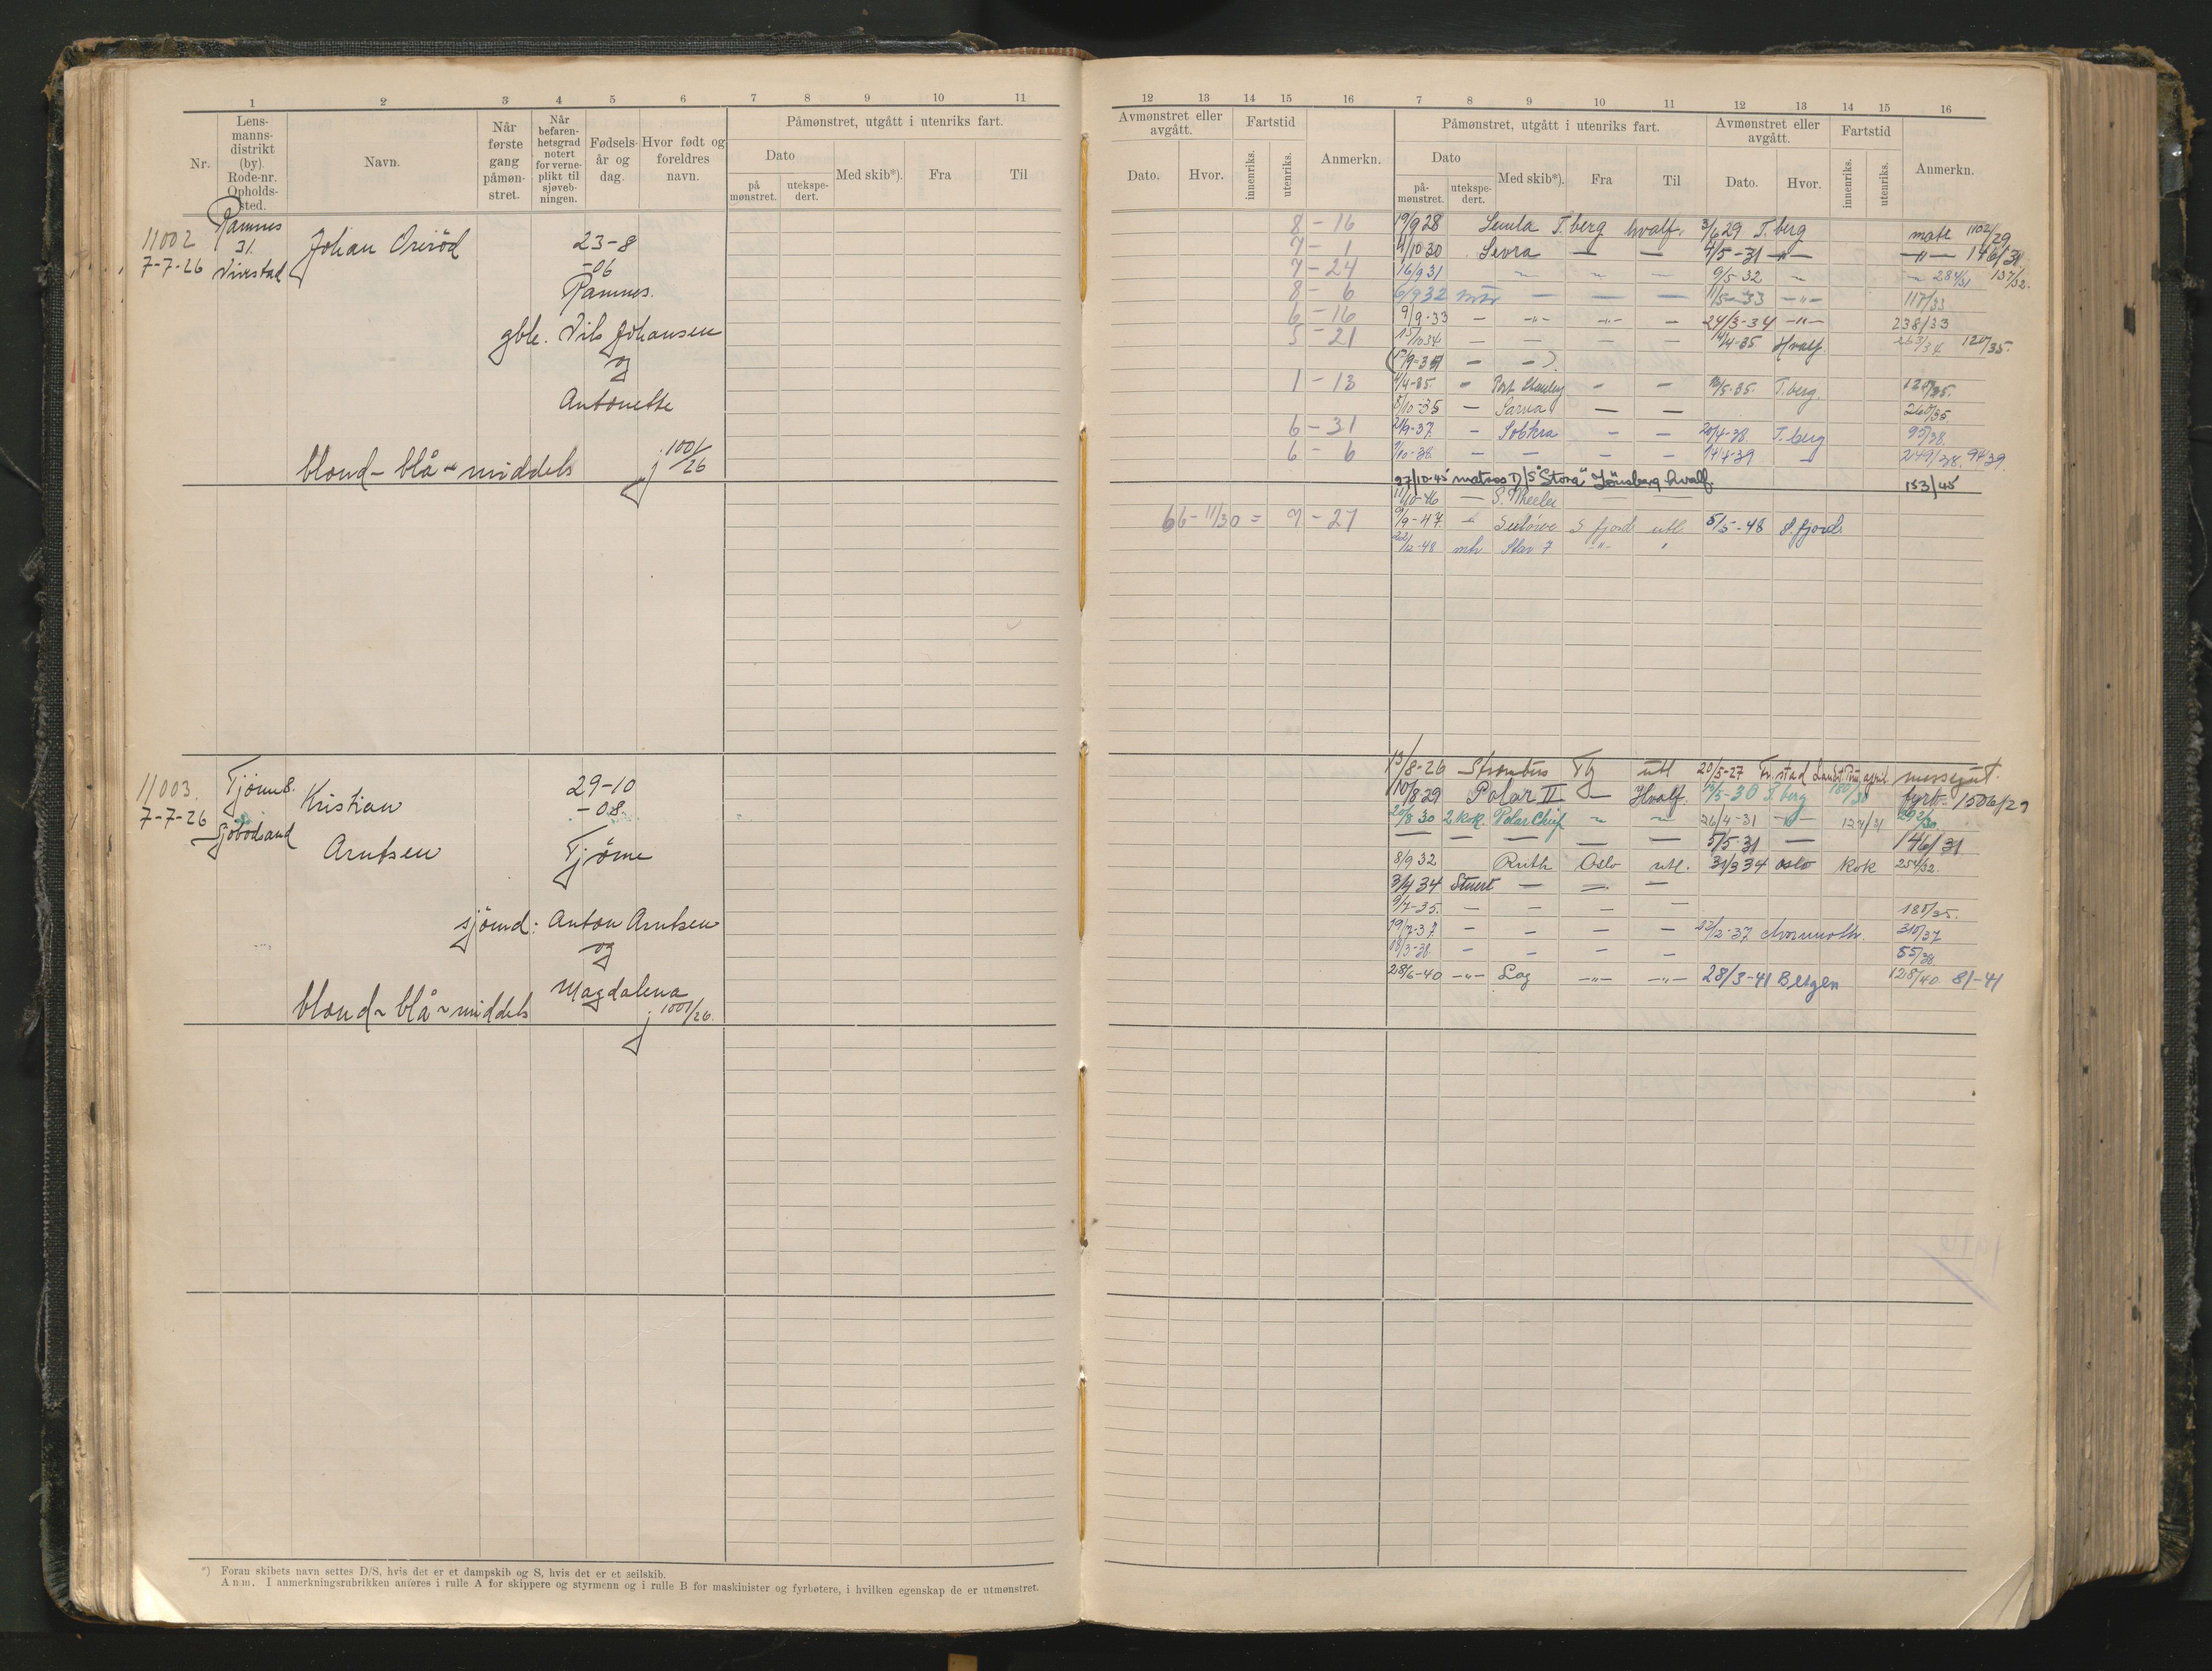 1 2 3 4 5 6 7 8 9 10 11
Nr.
Lens-
manns-
distrikt
(by).
Rode-nr.
Opholds-
sted.
Navn.
Når
første
gang
påmøn-
stret.
Når
befaren-
hetsgrad
notert
for verne-
plikt til
sjøveb-
ningen.
Fødsels-
år og
dag.
Hvor født og
foreldres
navn.
Påmønstret, utgått i utenriks fart.
Dato
på
mønstret.
utekspe-
dert.
Med skib*).
Fra
Til
11002
7-7-26
Ramnes
31.
Johan Orerød
23-8
-06
Ramnes.
gbl. Nils Johansen
og
Antonette
blond - blå - middels
j 100/26
11003.
7-7-26
Tjøme 8.
Kristian
Arntsen
29-10
-08
Tjøme
sjømd: Anton Arntsen
og
Magdalena
blond - blå - middels
j 100/26.
*) Foran skibets navn settes D/S, hvis det er et dampskib og S, hvis det er et seilskib.
Anm. I anmerkningsrubrikken anføres i rulle A for skippere og styrmenn og i rulle B for maskinister og fyrbøtere, i hvilken egenskap de er utmønstret.
12 13 14 15 16 7 8 9 10 11 12 13 14 15 16
Avmønstret eller
avgått.
Dato.
Hvor.
Fartstid
innenriks.
utenriks.
Anmerkn.
Påmønstret, utgått i utenriks fart.
Dato
på-
mønstret.
utekspe-
dert.
Med skib*).
Fra
Til
Avmønstret eller
avgått.
Dato.
Hvor.
Fartstid
innenriks.
utenriks.
Anmerkn.
8 - 16 19/9 28 Semla T.berg hvalf. 3/6 29 T.berg matr 1102/29
7 - 1 4/10 30 Sevra — — 4/5-31 -"- -"- 146/31
7 - 24 16/9 31 ~ ~ — 9/5-32 ~ ~ 284/31 137/32.
8 - 6 6/9 32 mtr — — — 11/5-33 -"- 117/33
6 - 16 9/9-33 — -"- -"- — 24/3-34 -"- 238/33
5 - 21 15/10 34 — — — — 14/4-35 Hvalf. 263/34 120/35.
— — ).
1 - 13 — — — T.berg. 120/35.
8/10-35 — — — 260/35.
6 - 31 21/9-37. — Solkra — — 20/4-38. T.berg 95/38.
6 - 6 — — — — 14/4-39 — 249/38. 94/39.
27/10-45 matros D/S "Stora" Tønsberg hvalf. 153/45
— —
66 - 11/30 = 7 - 27 9/9-47. S fjord utl 5/5-48 S.fjord
22/12-48 mtr Star 7 -"- "
13/8-26 Strombus Tbg utl 20/5-27 Fr.stad messegut.
10/8 29 Polar II — Hvalf. T.berg 180/30 fyrb. 1506/29
20/8 30 2 kok. Polar Chief ~ ~ 26/4-31 -"- 127/31 292/30
— — — — — 5/5 31 — 146/31
8/9 32 Ruth Oslo utl. 31/3 34 Oslo kok 254/32.
3/4 34 Stuert — — —
9/7-35. — — — — 180/35.
19/7-37. — — — — 310/37
— — — — 55/38
28/6-40 -"- Log -"- -"- 28/3-41 Bergen 128/40 81-41